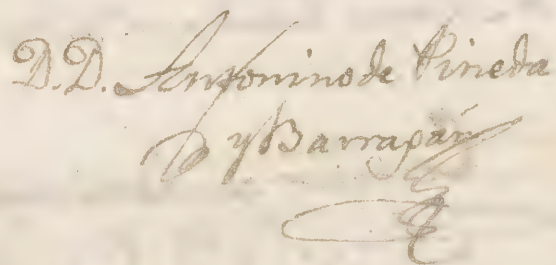 D.D. Antonino de Pineda
y Barragán